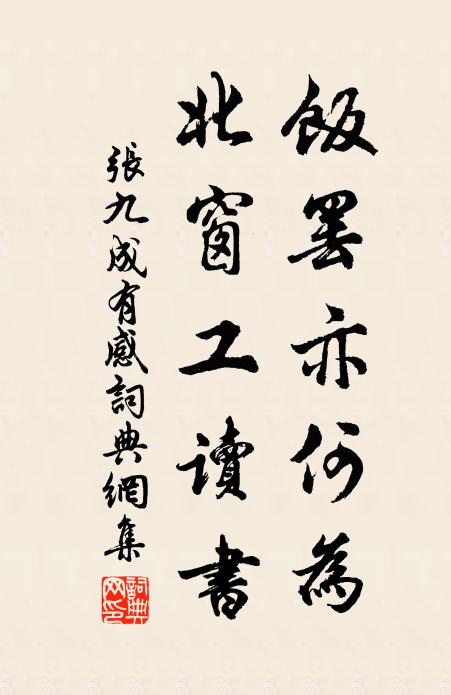 飯罷亦何為
北窗工讀書
張九成有感詞典網集
詞典
网印